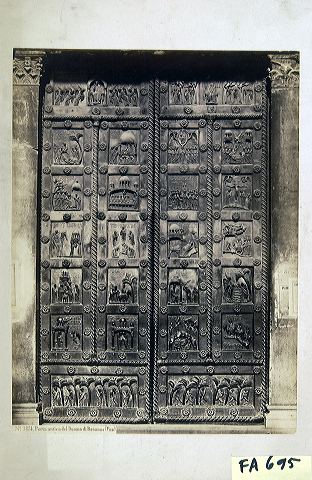 Nº 3824. Porta antica del Duomo di Bonanno (Pisa)
FA 695